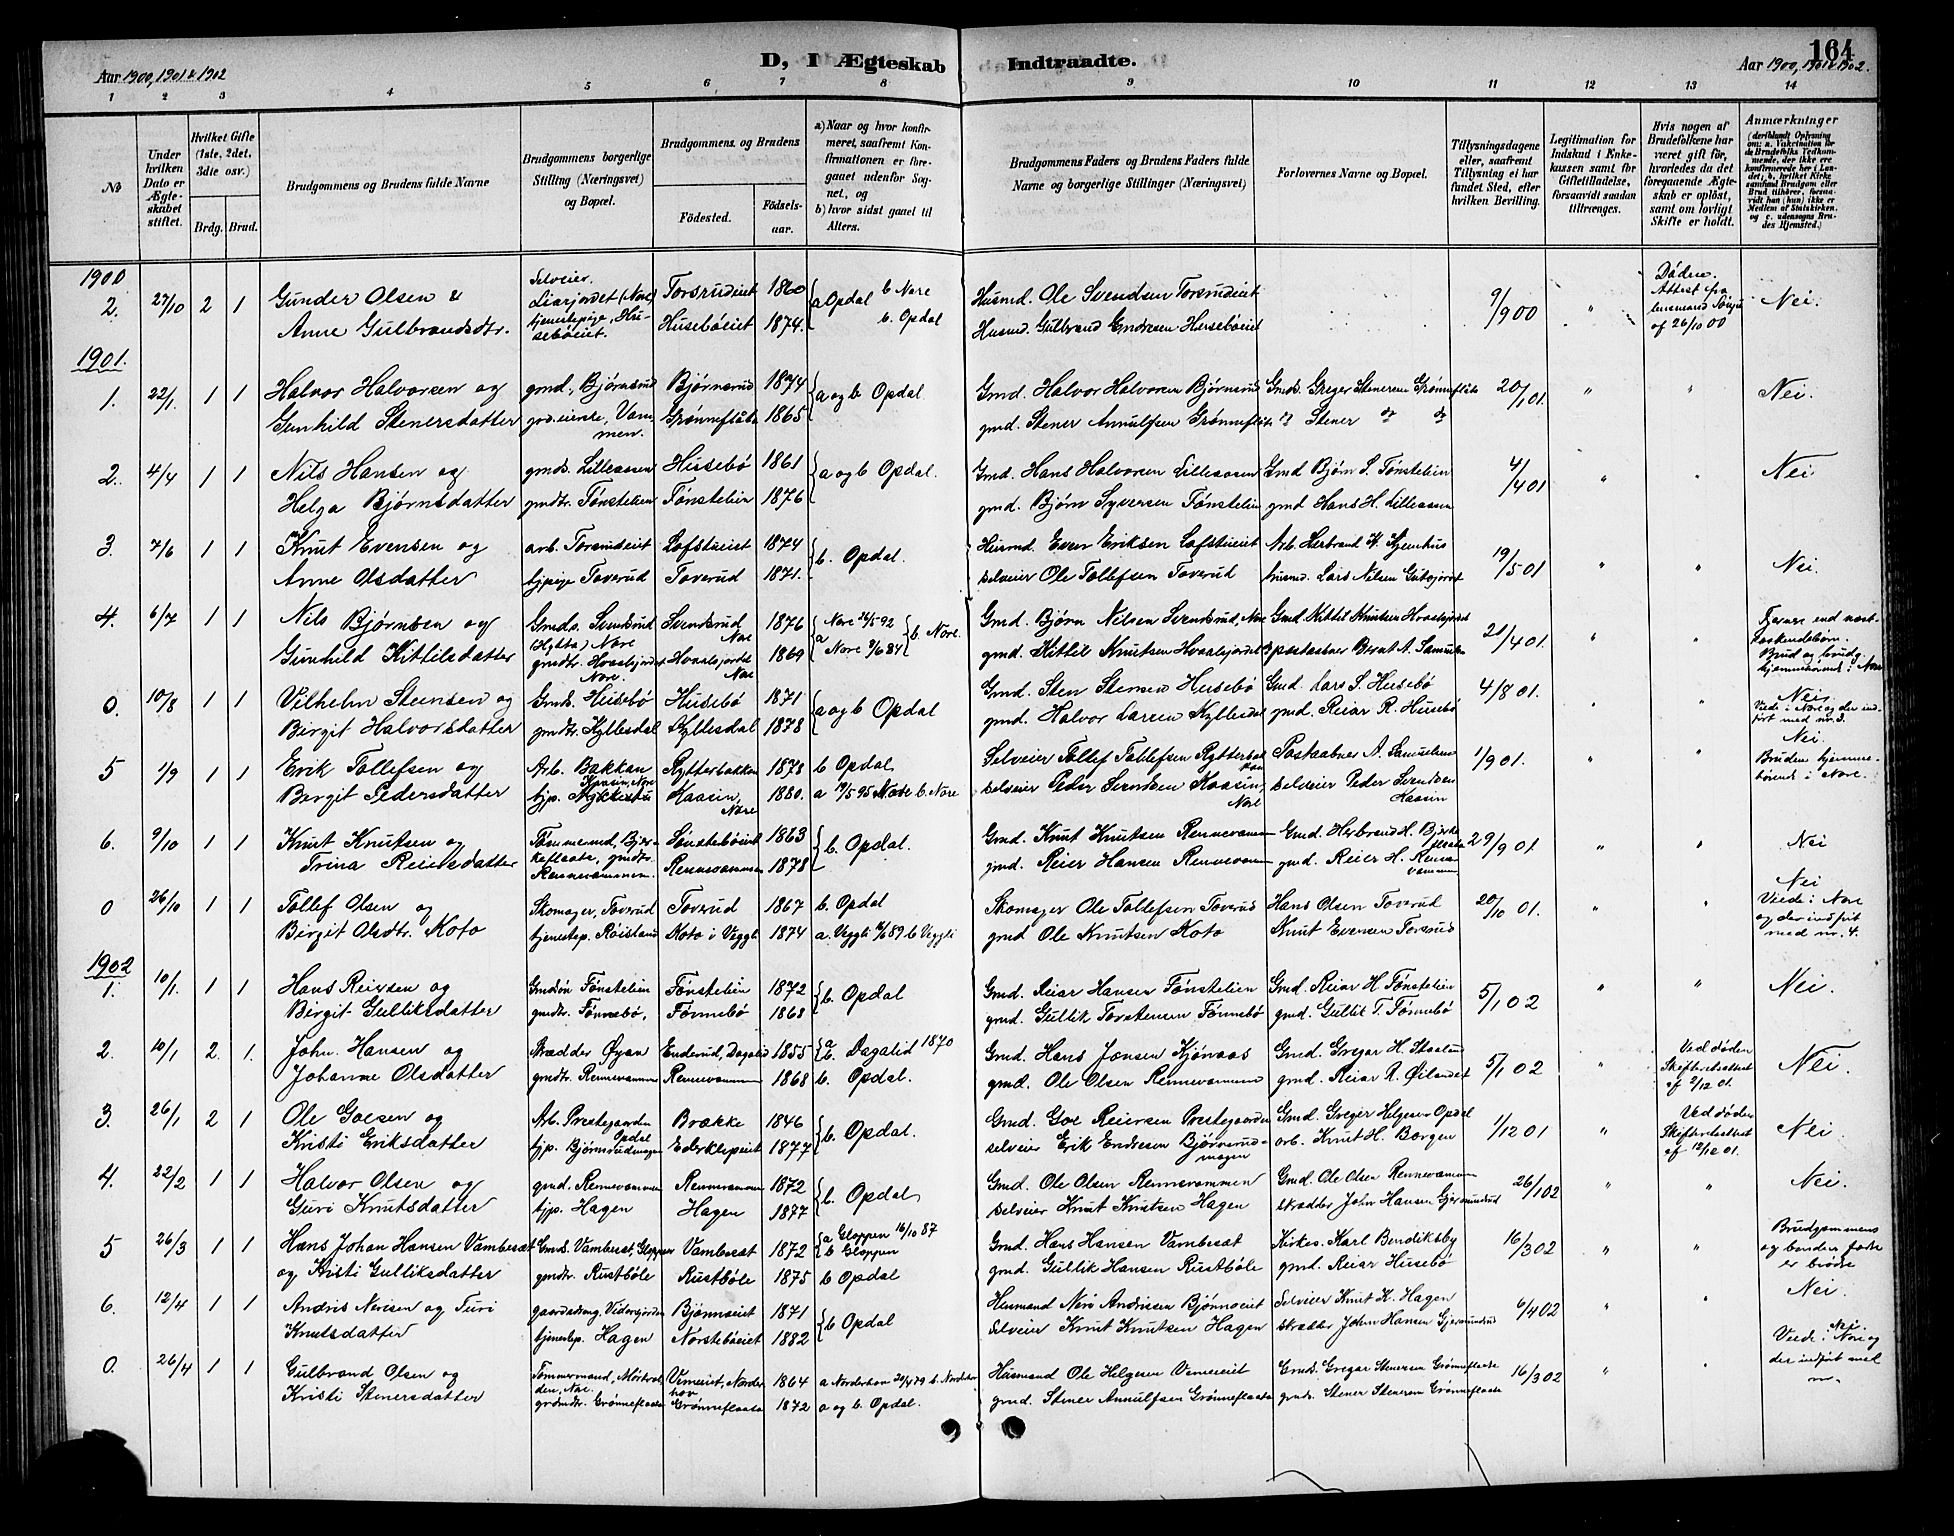 164
D, I Ægteskab Indtraadte.
Aar 1900, 1901 & 1902
Aar 1900, 1901 & 1902.
1 2 3 4 5 6 7 8 9 10 11 12 13 14
No
Under hvilken Dato er Ægteskabet stiftet.
Hvilket Gifte (1ste, 2det, 3die osv.)
Brdg. Brud.
Brudgommens og Brudens fulde Navne
Brudgommens borgerlige Stilling (Næringsvei) og Bopæl.
Brudgommens og Brudens
Födested.
Födselsaar.
a) Naar og hvor konfirmeret, saafremt Konfirmationen er foregaaet udenfor Sognet, og
b) hvor sidst gaaet til Alters.
Brudgommens Faders og Brudens Faders fulde Navne og borgerlige Stillinger (Næringsvei)
Forlovernes Navne og Bopæl.
Tillysningsdagene eller, saafremt Tillysning ei har fundet Sted, efter hvilken Bevilling.
Legitimation for Indskud i Enkekassen samt for Giftetilladelse, forsaavidt saadan tiltrænges.
Hvis nogen af Brudefolkene har været gift för, hvorledes da det foregaaende Ægteskab er oplöst, samt om lovligt Skifte er holdt.
Anmærkninger
1900
2. 27/10 2 1 Gunder Olsen & Selveier. Liarjordet (Nore) Torsrudeiet 1860 a Opdal b. Nore Husmd. Ole Svendsen Torsrudeiet 9/900 " Döden. Attest fra lensmand af 26/10 00 Nei.
Anne Gulbrandsdtr. tjenestepige, Husebøeiet. Husebøeiet 1874. b. Opdal Husmd. Gulbrand Endresen Husebøeiet
1901.
1. 22/1. 1 1 Halvor Halvorsen og gmd. Bjørnsrud Bjørnsrud 1874 a og b Opdal. Gmd. Halvor Halvorsen Bjørnsrud Gmds. Greger Stenersen Grønneflaate 20/1 01. " " Nei.
Gunhild Stenersdatter Vammen. Grønneflaate 1865 gmd. Stener Annulfsen Grønneflaate og Stener
2. 4/4 1 1 Nils Hansen og gmds. Lilleaasen Husebø 1861 a og b Opdal. Gmd. Hans Halvorsen Lilleaasen Gmd Bjørn S. Tønstelien 4/4 01 " " Nei
Helga Bjørnsdatter gmdtr. Tønstelien Tønstelien 1876 gmd. Bjørn Syversen Tønstelien gmd Hans H. Lilleaasen
3. 7/6 1 1 Knut Evensen og arb. Torsrudeiet Lofstueiet 1874 b. Opdal. Husmd. Even Eriksen Lofstueiet Arb. Herbrand K. Hjemhus 19/5 01 " " Nei.
Anne Olsdatter tjpige Toverud Toverud 1871. selveier Ole Tollefsen Toverud husmd. Lars Nilsen
4. 6/7 1 1 Nils Bjørnsen og Gmds. Svendsrud (Hytta) Nore Svendsrud Nore 1876 a Nore 26/5 92 b. Nore. Gmd. Bjørn Nilsen Svendsrud, Nore Gmd. Kittil Knutsen Hvaalsjordet 21/4 01. " " Fjernere end næstsöskendebørn. Brud og brudg. hjemmehørende i Nore
Gunhild Kittilsdatter gmdtr. Hvaalsjordet Nore. Hvaalsjordet Nore 1869 Nore 9/6 84 gmd. Kittil Knutsen Hvaalsjordet postaabner Bernt A. Samuelsen
0. 10/8 1 1 Vilhelm Stensen og Gmds. Husebø Husebø 1871 a og b Opdal Gmd. Sten Stensen Husebø Gmd. Lars S. Husebø 4/8 01. " " Nei. Viede i Nore og der indført med nr. 3.
Birgit Halvorsdatter gmdtr. Kyllesdal Kyllesdal 1878 gmd. Halvor Larsen Kyllesdal gmd. Reiar R. Husebø
5 1/9 1 1 Erik Tollefsen og Arb. Bakkan Rytterbakkan 1878 b Opdal Selveier Tollef Tollefsen Rytterbakkan Postaabner A. Samuelsen 1/9 01. " " Nei. Brudens hjemmehørende i Nore.
Borgit Pedersdatter tjp. Kaasin, Nore 1880. a 19/5 95 Nore b. Nore selveier Peder Svendsen Kaasin, Nore selveier Peder Svendsen Kaasin
6. 9/10 1 1 Knut Knutsen og Tømmermd, Bjerkeflaate, gmdtr. Sønstebøeiet 1863 b. Opdal. Gmd. Knut Knutsen Rennevammen Gmd. Herbrand H. Bjerkeflaate 29/9 01. " " Nei
Trina Reiersdatter Rennevammen. Rennevammen 1878 gmd. Reier Hansen Rennevammen gmd. Reier H. Rennevammen
0 26/10 1 1 Tollef Olsen og Skomager, Toverud Toverud 1867 b. Opdal Skomager Ole Tollefsen Toverud Hans Olsen Toverud 20/10 01. " " Nei Viede i Nore og der indført med nr. 4.
Birgit Olsdtr. Koto tjenestep. Röisland Koto i Veggli 1874 a. Veggli /6 89 b Veggli gmd Ole Knutsen Koto Knut Evensen Torsrud
1902
1. 10/1. 1 1 Hans Reiersen og Gmdsön Tønstelien Tønstelien 1872 b. Opdal Gmd. Reiar Hansen Tønstelien Gmd. Reiar H. Tønstelien 5/1 02 " " Nei.
Birgit Gulliksdatter gmdtr. Fönnebø. Fönnebø 1868 gmd. Gullik Torstensen Fönnebø gmd. Gullik T. Fönnebø
2. 10/1 2. 1. John Hansen og Skrædder Øyan Enderud, Dagalid 1855 a b. Dagalid 1870 Gmd. Hans Jonsen Kjønaas Gmd. Gregar H. 5/1 02 " Ved döden Skifteretsattest af 2/12 01. Nei
Johanne Olsdatter gmdtr. Rennevammen Rennevammen 1868 b. Opdal. gmd. Ole Olsen Rennevammen gmd. Reiar R. Øilandet
3. 26/1 2 1 Ole Goesen og Arb. Prestegaarden Opdal Brække 1846 b. Opdal. Gmd. Goe Reiersen Prestegaarden Gmd. Greger Helgesen Opdal 1/12 01 " Ved döden Skifteretsattest af 12/12 01. Nei.
Kristi Eriksdatter tjp. Bjørnsrudmogen Ederklepeiet 1877 selveier Erik Endresen Bjørnsrudmogen arb. Knut H. Borgen
4. 22/2 1 1 Halvor Olsen og gmd. Rennevammen Rennevammen 1872 b. Opdal Gmd. Ole Olsen Rennevammen Gmd. Ole Olsen Rennevammen 26/1 02 " " Nei.
Guri Knutsdatter tjp. Hagen Hagen 1877 selveier Knut Knutsen Hagen skrædder John Hansen Gjermundrud
5 26/3 1 1 Hans Johan Hansen Vambesæt Gmds. Vambesæt, Gloppen Vambesæt 1872 a Gloppen 16/10 87 b Gloppen Gmd. Hans Hansen Vambesæt Kirkes. Karl Bendiksby 16/3 02 " " Brudgommens og brudens fædre er brødre
og Kristi Gulliksdatter gmdtr. Rustbøle Rustbøle 1875 b Opdal gmd. Gullik Hansen Rustbøle gmd. Reiar Husebø
6. 12/4 1 1 Andris Nerisen og Turi gaardsdreng, Vidersjorden Bjønnseiet 1871 b Opdal Husmand Neri Andrissen Bjønnseiet Selveier Knut K. Hagen 6/4 02 " " Nei.
Knutsdatter tjenestep. Hagen Nørstebøeiet 1882 Selveier Knut Knutsen Hagen skrædder John Hansen Gjermundrud
0. 26/4 1 1 Gulbrand Olsen og Tømmermand, Nore. Vemeeiet, Norderhov 1864 a Norderhov 20/4 79 b. Norderhov Husmand Ole Helgesen Vemeeiet Gmds. Gregar Stenersen Grønneflaate 16/3 02 " " Nei. Viede i Nore og der indført med nr.
Kristi Stenersdatter grdmdtr. Grønneflaata Grønneflaata 1872 a og b. Opdal. gmd. Stener Annulfsen Grønneflaata gmds. Stener Stenersen Grønneflaata